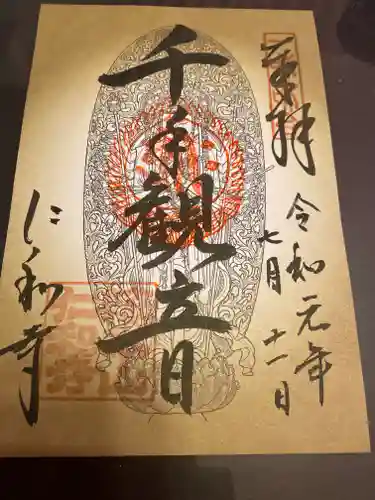 奉拝
令和元年
七月十一日
千手観音
仁和寺